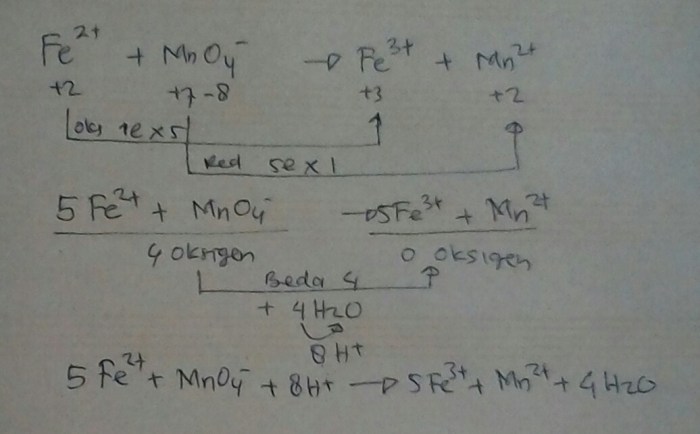 Fe²⁺ + MnO₄⁻ → Fe³⁺ + Mn²⁺
+2 +7 -8 +3 +2
Oks 1e x 5
Red 5e x 1
5 Fe²⁺ + MnO₄⁻ → 5 Fe³⁺ + Mn²⁺
4 oksigen 0 oksigen
Beda 4
+ 4 H₂O
8 H⁺
5 Fe²⁺ + MnO₄⁻ + 8H⁺ → 5 Fe³⁺ + Mn²⁺ + 4 H₂O